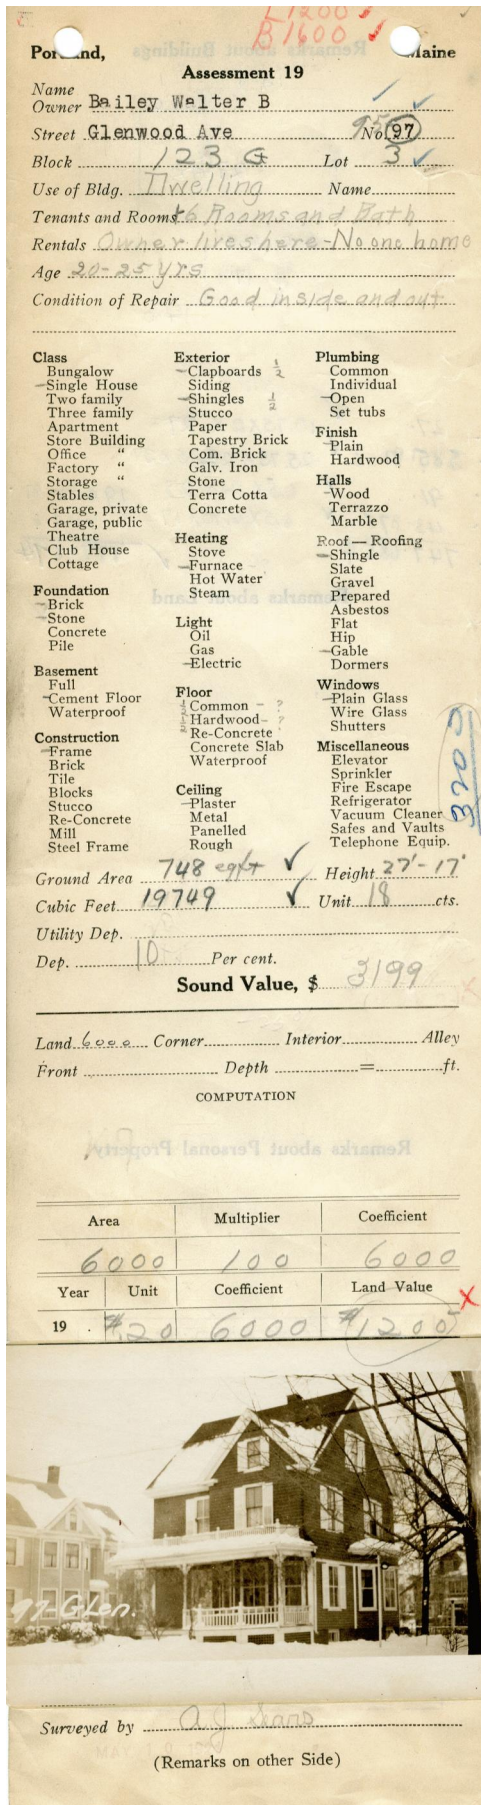 L 1200 ✓
B 1600 ✓
Portland, Maine
Assessment 19
Name
Owner Bailey Walter B
Street Glenwood Ave 95 No. 97
Block 123 G Lot 3 ✓
Use of Bldg. Dwelling Name
Tenants and Rooms 6 Rooms and Bath
Rentals Owner lives here - No one home
Age 20-25 yrs
Condition of Repair Good inside and out
Class
Bungalow
-Single House
Two family
Three family
Apartment
Store Building
Office "
Factory "
Storage "
Stables
Garage, private
Garage, public
Theatre
Club House
Cottage
Foundation
-Brick
-Stone
Concrete
Pile
Basement
Full
-Cement Floor
Waterproof
Construction
-Frame
Brick
Tile
Blocks
Stucco
Re-Concrete
Mill
Steel Frame
Exterior
-Clapboards ½
Siding
-Shingles ½
Stucco
Paper
Tapestry Brick
Com. Brick
Galv. Iron
Stone
Terra Cotta
Concrete
Heating
Stove
-Furnace
Hot Water
Steam
Light
Oil
Gas
-Electric
Floor
½ Common - ?
½ Hardwood - ?
Re-Concrete
Concrete Slab
Waterproof
Ceiling
-Plaster
Metal
Panelled
Rough
Plumbing
Common
Individual
-Open
Set tubs
Finish
-Plain
Hardwood
Halls
-Wood
Terrazzo
Marble
Roof — Roofing
-Shingle
Slate
Gravel
Prepared
Asbestos
Flat
Hip
-Gable
Dormers
Windows
-Plain Glass
Wire Glass
Shutters
Miscellaneous
Elevator
Sprinkler
Fire Escape
Refrigerator
Vacuum Cleaner
Safes and Vaults
Telephone Equip.
3200
Ground Area 748 sqft ✓ Height 27'-17'
Cubic Feet 19749 ✓ Unit 18 cts.
Utility Dep.
Dep. 10 Per cent.
Sound Value, $ 3199
Land 6000 Corner Interior Alley
Front Depth = ft.
COMPUTATION
Area Multiplier Coefficient
6000 100 6000
Year Unit Coefficient Land Value
19 . $.20 6000 $1200
97 Glen.
Surveyed by A. J. Sears
(Remarks on other Side)